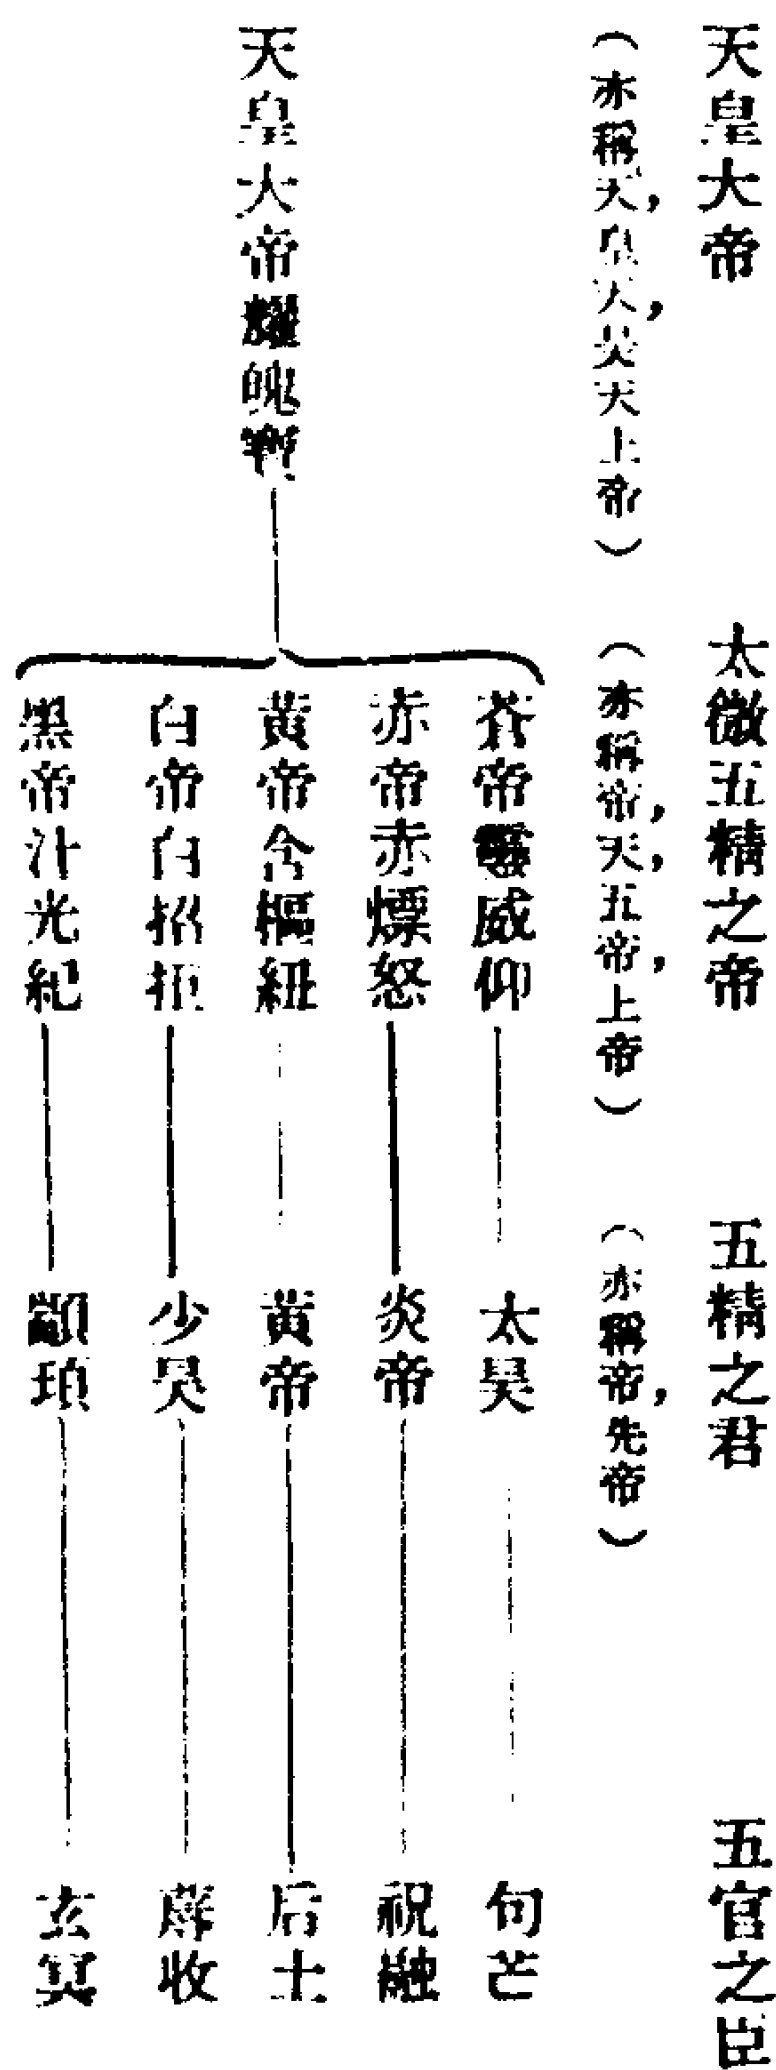 天皇大帝
太微五精之帝
五精之君
五官之臣
（亦稱天，皇天，昊天上帝）
（亦稱帝，天，五帝，上帝）
（亦稱帝，先帝）
蒼帝靈威仰
太昊
句芒
赤帝赤熛怒
炎帝
祝融
天皇大帝耀魄寶
黃帝含樞紐
黃帝
后土
白帝白招拒
少昊
蓐收
黑帝汁光紀
顓頊
玄冥